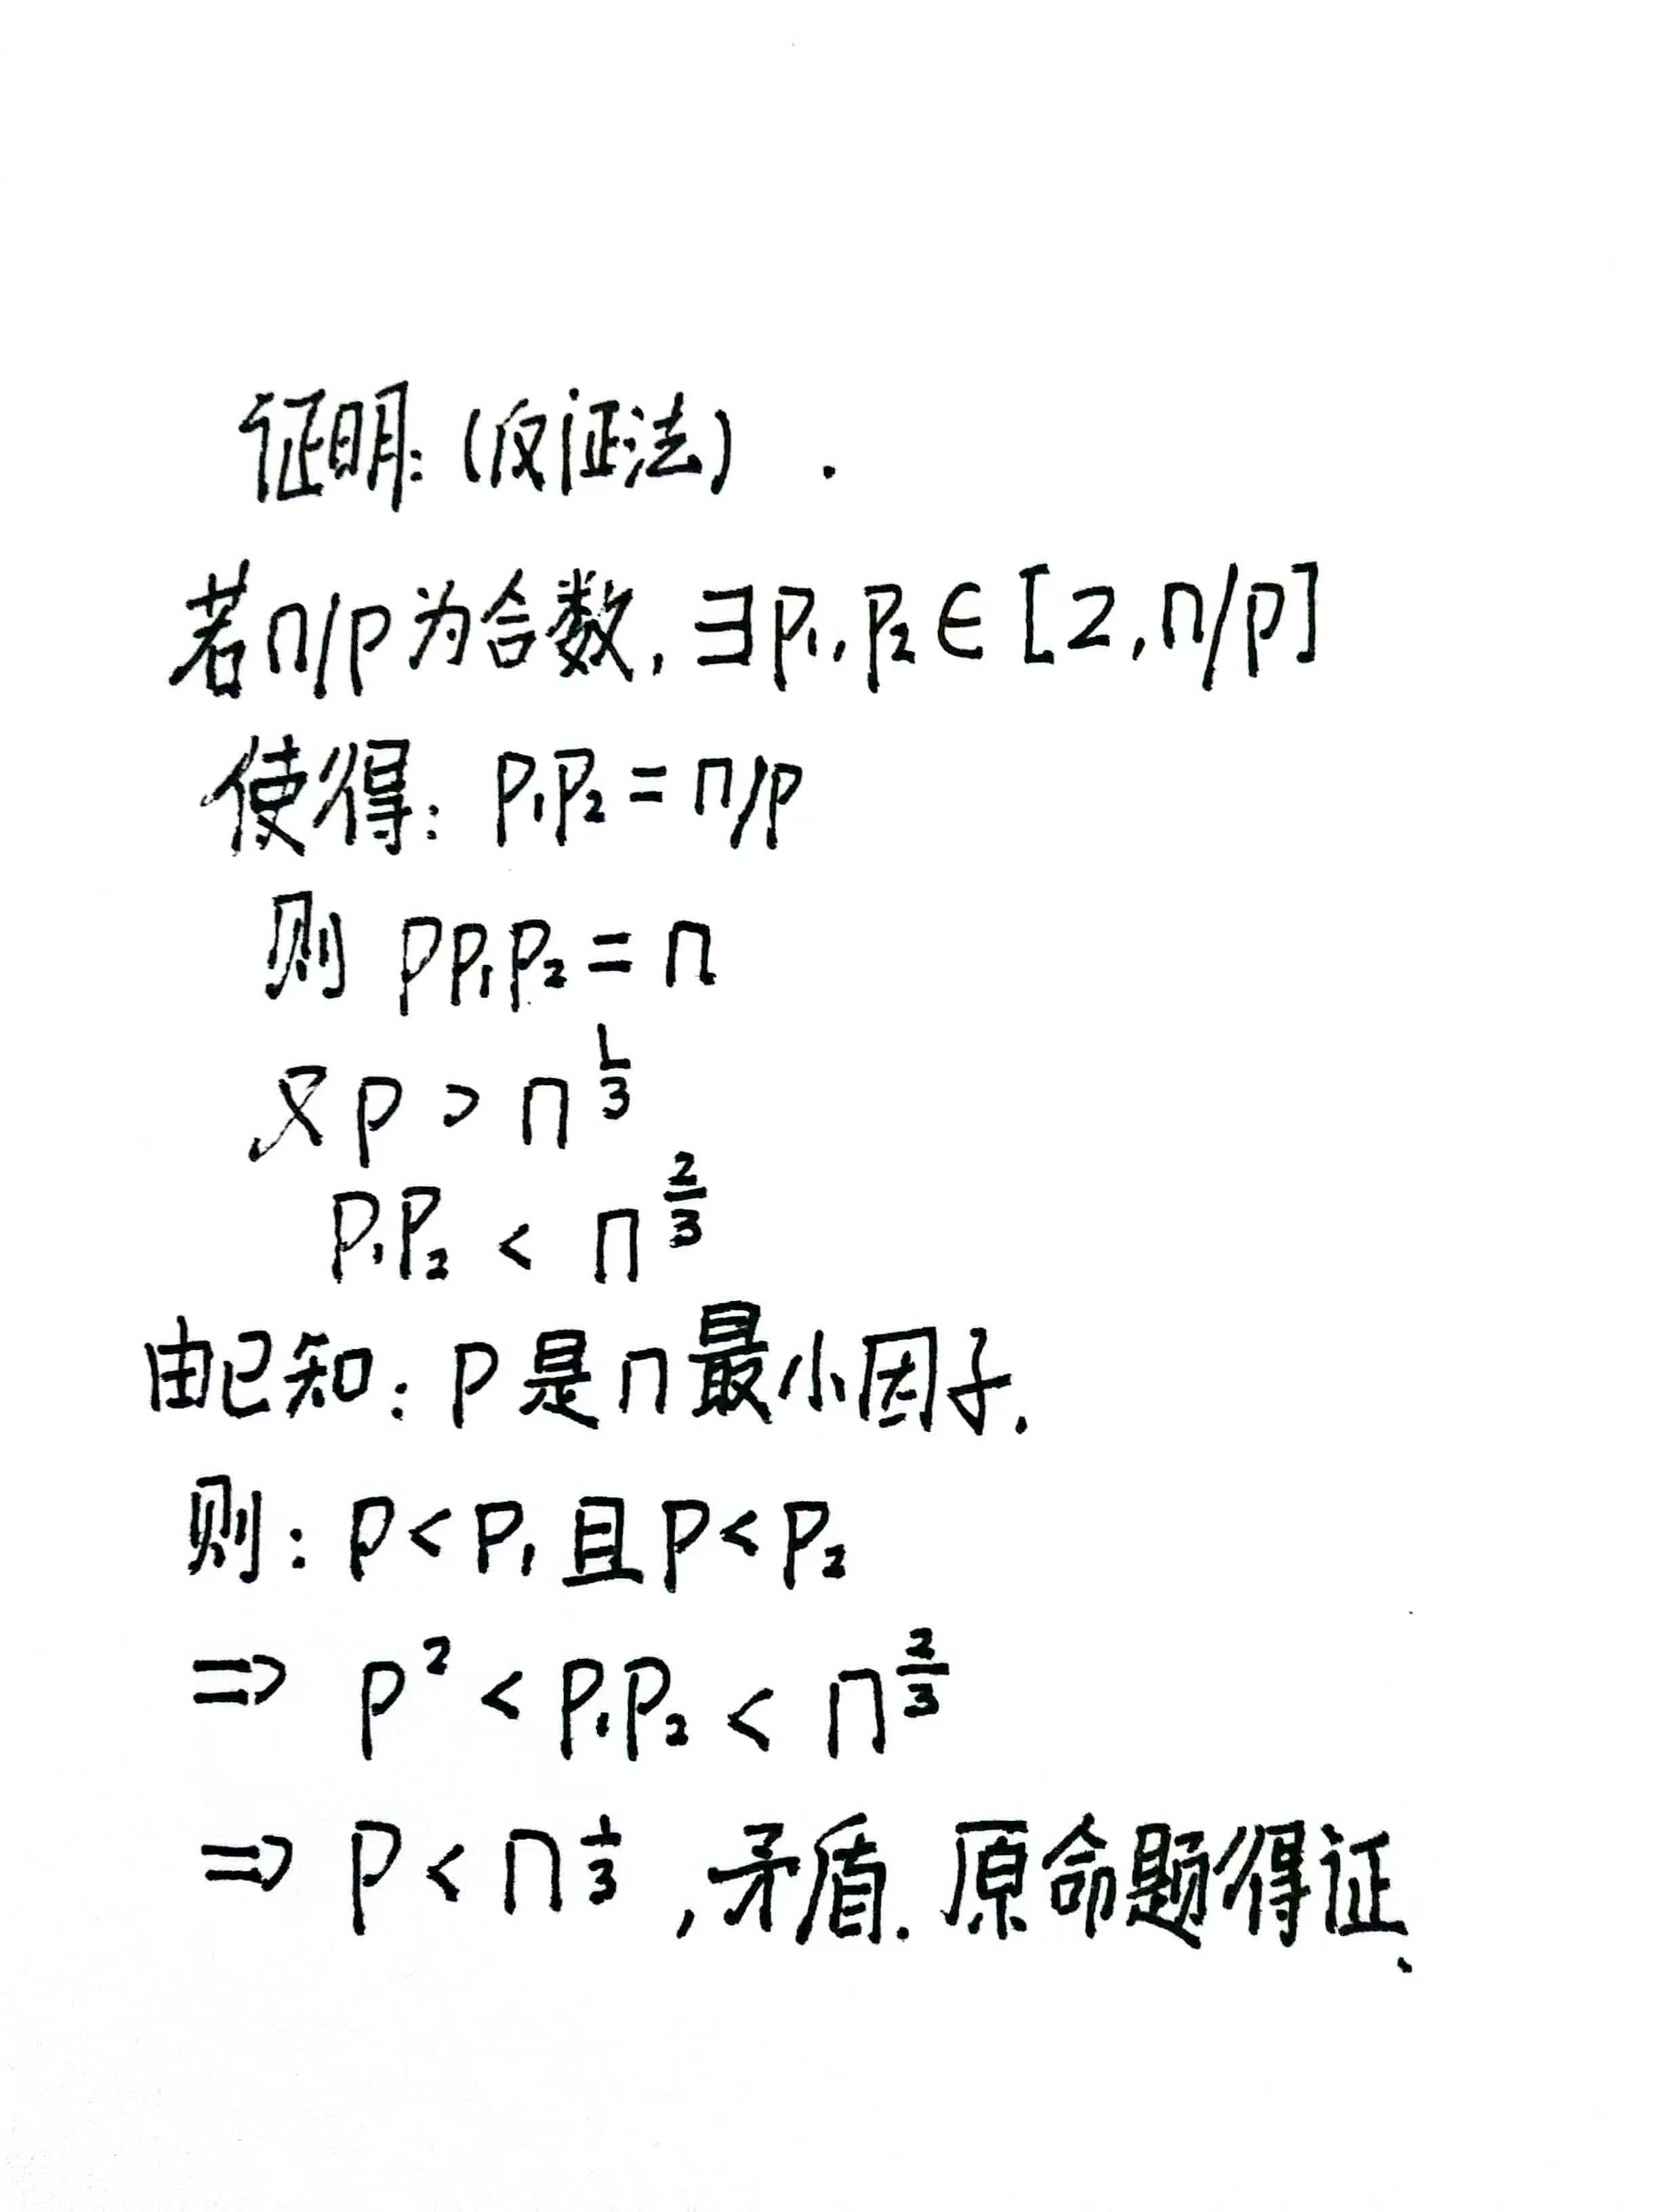 证明:(反证法).
若n/p为合数,∃p₁,p₂∈[2,n/p]
使得:p₁p₂=n/p
则 pp₁p₂=n
又p>n^{1/3}
p₁p₂<n^{2/3}
由已知:p是n最小因子.
则:p<p₁且p<p₂
⇒ p²<p₁p₂<n^{2/3}
⇒ p<n^{1/3},矛盾.原命题得证.